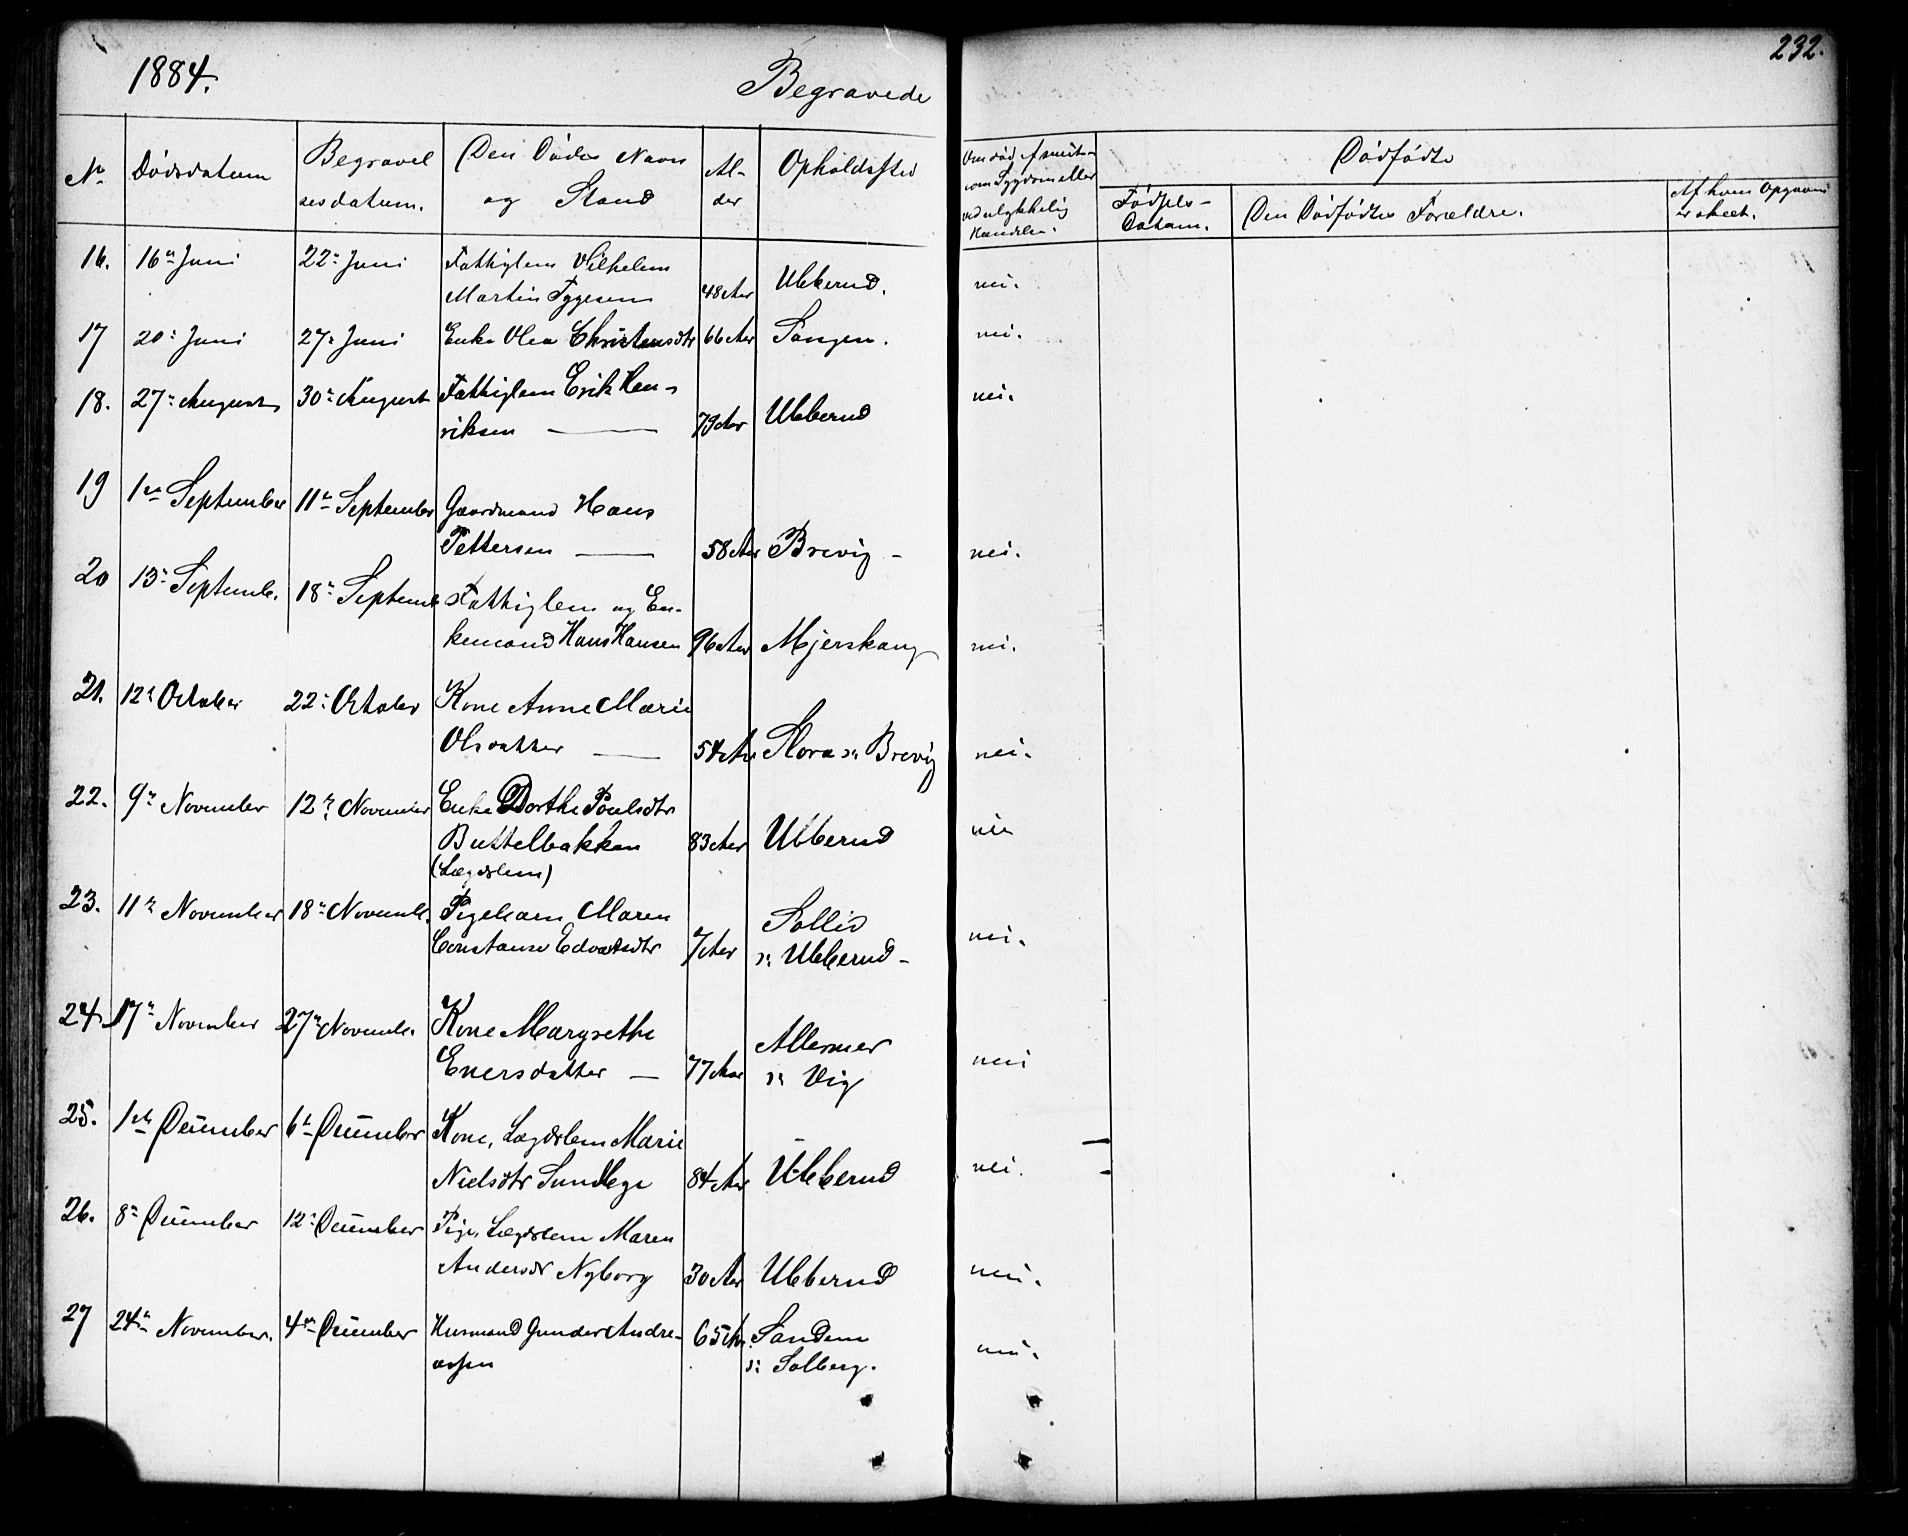 1884. Begravede 232.
No Dødsdatum Begravelsesdatum. Den Dødes Navn og Stand Alder Opholdssted Om død af smitsom Sygdom eller ved ulykkelig Hændelse. Dødfødte
Fødsels-Datum. Den Dødfødtes Forældre. Af hvem Opgaven er skeet.
16. 16de Juni 22de Juni Fattiglem Vilhelm
Martin Tygesen 48 Aar Ubberud. nei.
17 20de Juni 27de Juni Enke Olea Christensdtr 66 Aar Sangen. nei.
18. 27de August 30te August Fattiglem Erik Hen-
riksen — 79 Aar Ubberud nei.
19 1ste September 11te September Gaardmand Hans
Pettersen — 58 Aar Brevig - nei.
20 13de Septemb. 18de Septemb Fattiglem og En-
kemand Hans Hansen 96 Aar Mjerskaug nei.
21. 12te October 22de October Kone Anne Marie
Olsdatter — 54 Aar Slora u. Brevig nei.
22. 9de November 12te November Enke Dorthe Poulsdtr
Buttelbakken 83 Aar Ubberud nei
(Lægdslem)
23. 11te November 18de Novemb. Pigebarn Maren Sollid
Constanse Edvardsdtr 7 Aar u. Ubberud - nei.
24. 17de November 27de Novemb. Kone Margrethe
Enersdatter — 77 Aar u. Vig neii
25. 1ste December 6te December Kone, Lægdslem Marie
Nielsdtr Sundlege 84 Aar Ubberud nei.
26. 8de December 12te December Pige, Lægdslem Maren
Andersdr Nyborg 30 Aar Ubberud nei.
27 24de November. 4de December Husmand Gunder Andre- 65 Aar Sandem
assen u. Solberg. nei.